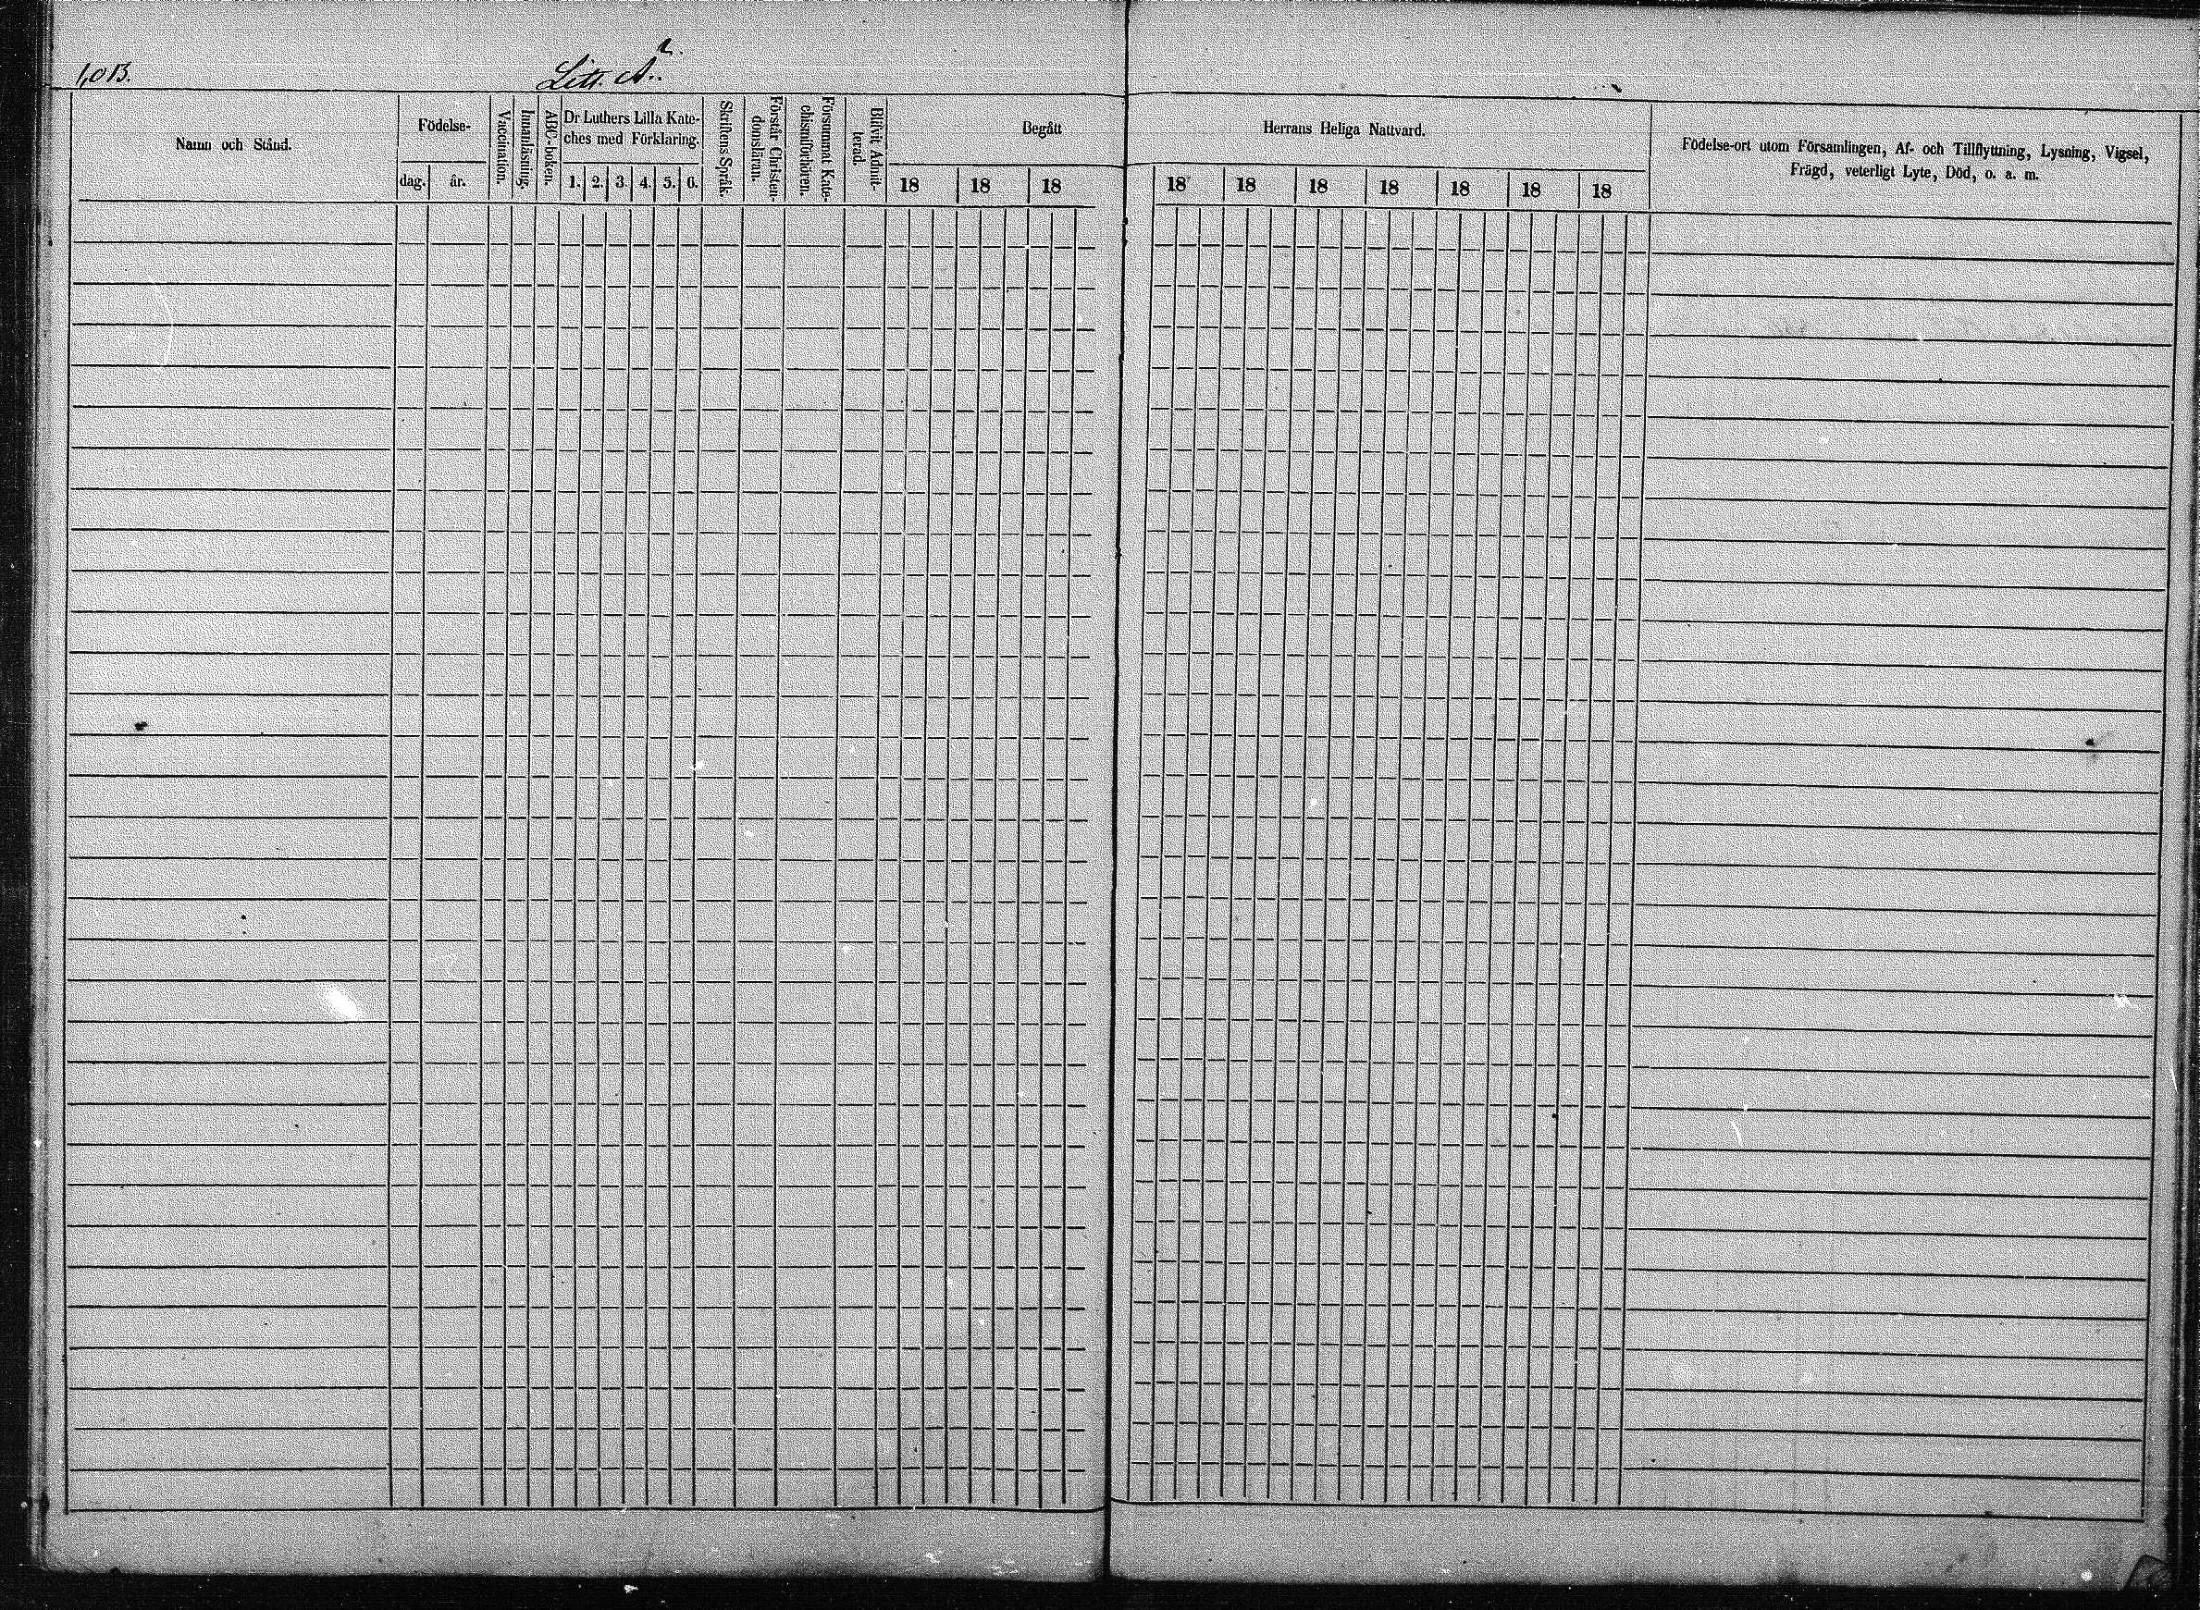 1013.
Litt. A².
Namn och Stånd.
Födelse-
dag. år.
Vaccination.
Innanläsning.
ABC-boken.
Dr Luthers Lilla Kate-
ches med Förklaring.
1. 2. 3. 4. 5. 6.
Skriftens Språk.
Förstår Christen-
domsläran.
Försummat Kate-
chismiförhören.
Blifvit Admit-
terad.
Begått
18 18 18
Herrans Heliga Nattvard.
18 18 18 18 18 18 18
Födelse-ort utom Församlingen, Af- och Tillflyttning, Lysning, Vigsel,
Frägd, veterligt Lyte, Död, o. a. m.